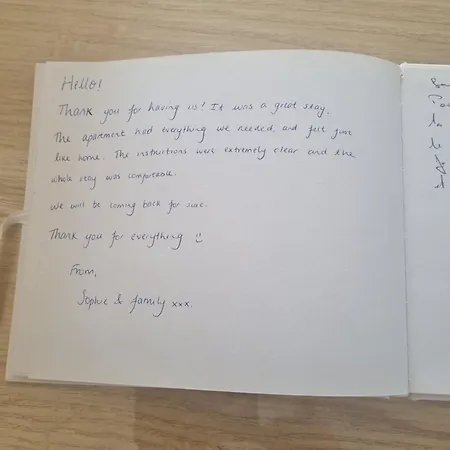 Hello!
Thank you for having us! It was a great stay.
The apartment had everything we needed, and felt just
like home. The instructions were extremely clear and the
whole stay was comfortable.
We will be coming back for sure.
Thank you for everything :)
From,
Sophie & family xxx.